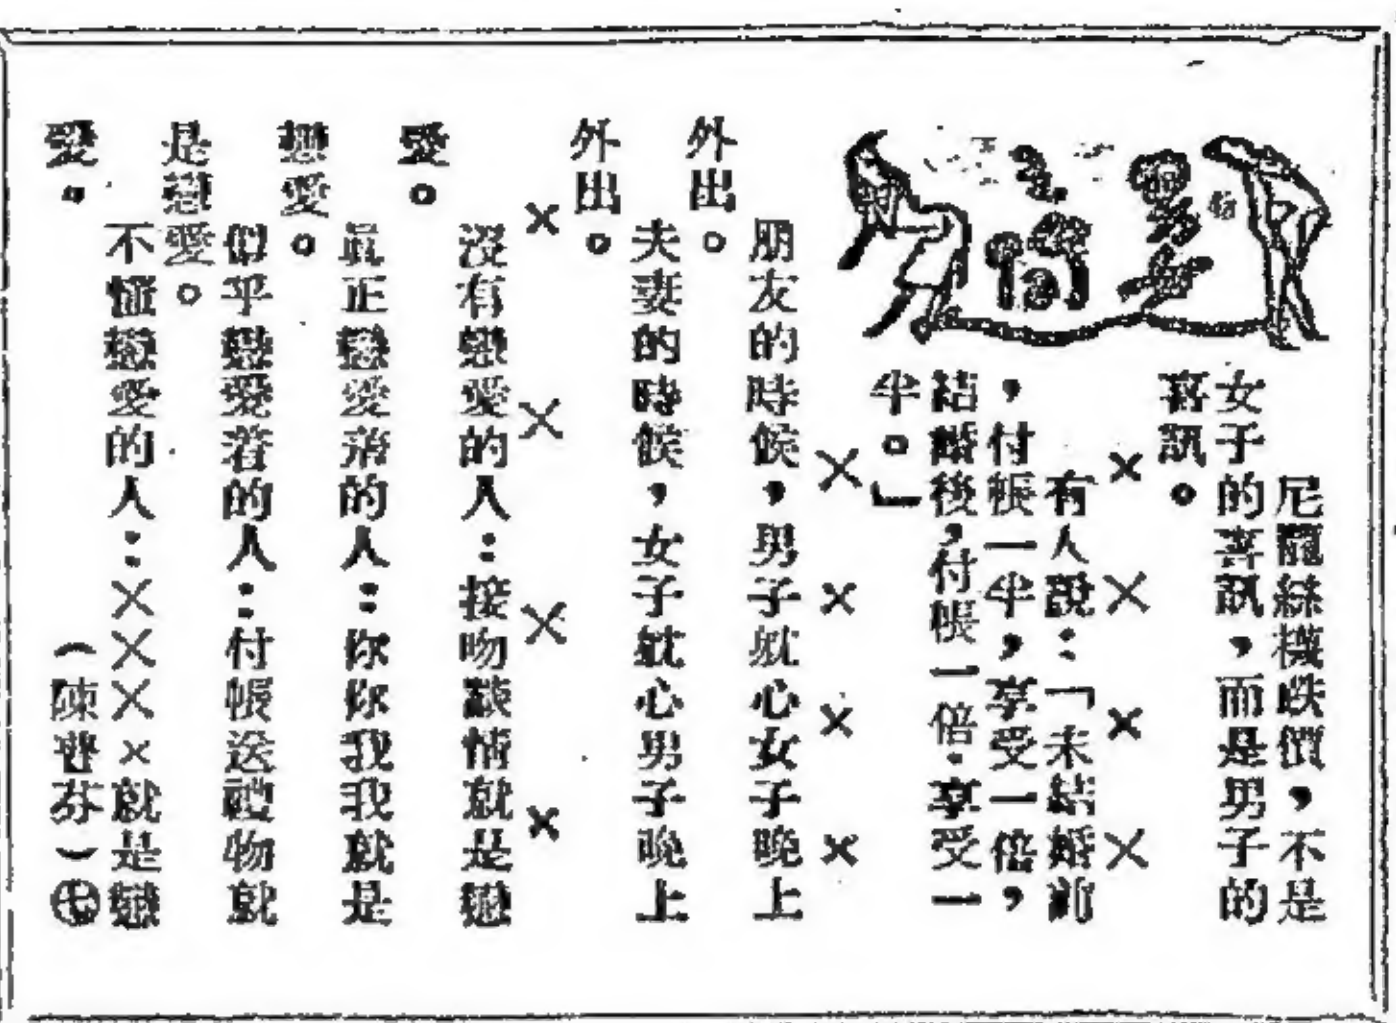 男女間
尼龍絲襪跌價，不是
女子的喜訊，而是男子的
喜訊。
× × × ×
有人說：「未結婚前
，付帳一半，享受一倍，
結婚後，付帳一倍．享受一
半。」
× × × ×
朋友的時候，男子躭心女子晚上
外出。
夫妻的時候，女子躭心男子晚上
外出。
× × × ×
沒有戀愛的人：接吻談情就是戀
愛。
眞正戀愛着的人：你你我我就是
戀愛。
似乎戀愛着的人：付帳送禮物就
是戀愛。
不懂戀愛的人：××××就是戀
愛。
（陳 芬）㊆